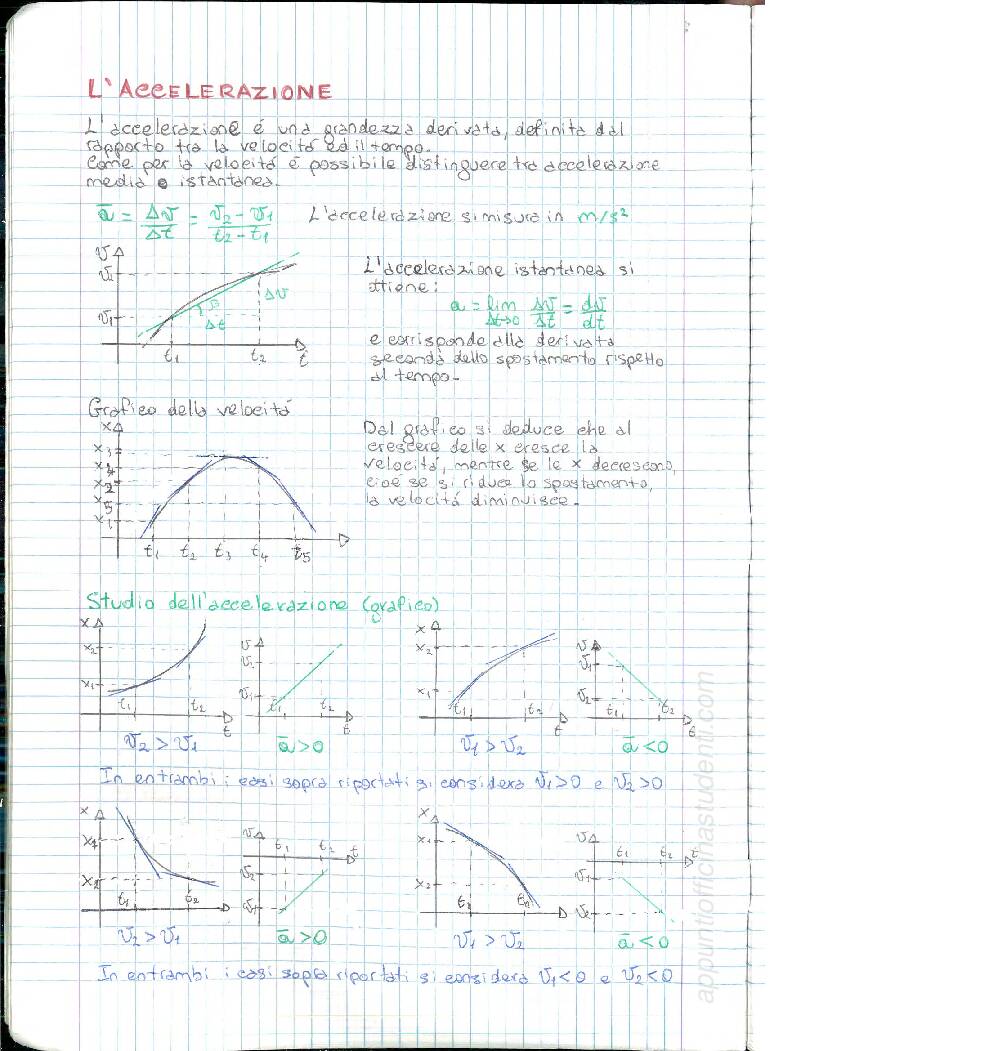 L'ACCELERAZIONE
L'accelerazione é una grandezza derivata, definita dal
rapporto tra la velocitá ed il tempo.
Come per la velocitá é possibile distinguere tra accelerazione
media e istantanea.
ā = Δv/Δt = v₂ - v₁/t₂ - t₁ L'accelerazione si misura in m/s²
v
v₁
Δv
Δt
t₁ t₂ t
L'accelerazione istantanea si
ottiene:
a = lim Δt→0 Δv/Δt = dv/dt
e corrisponde alla derivata
seconda dello spostamento rispetto
al tempo.
Grafico della velocitá
x
x₃
x₄
x₂
x₅
x₁
t₁ t₂ t₃ t₄ t₅
Dal grafico si deduce che al
crescere delle x cresce la
velocitá, mentre se le x decrescono,
cioé se si riduce lo spostamento,
la velocitá diminuisce.
Studio dell'accelerazione (grafico)
x
x₂
x₁
t₁ t₂
t
v₂ > v₁
v
v₁
t₁ t₂
t
ā > 0
x
x₂
x₁
t₁ t₂
t
v₁ > v₂
v
v₁
v₂
t₁ t₂
t
ā < 0
In entrambi i casi sopra riportati si considera v₁>0 e v₂>0
x
x₁
x₂
t₁ t₂
v₂ > v₁
v
t₁ t₂ t
v₂
v₁
ā > 0
x
x₁
x₂
v₁ > v₂
v
t₁ t₂ t
v₁
v₂
ā < 0
In entrambi i casi sopra riportati si considera v₁<0 e v₂<0
appuntiofficinastudenti.com